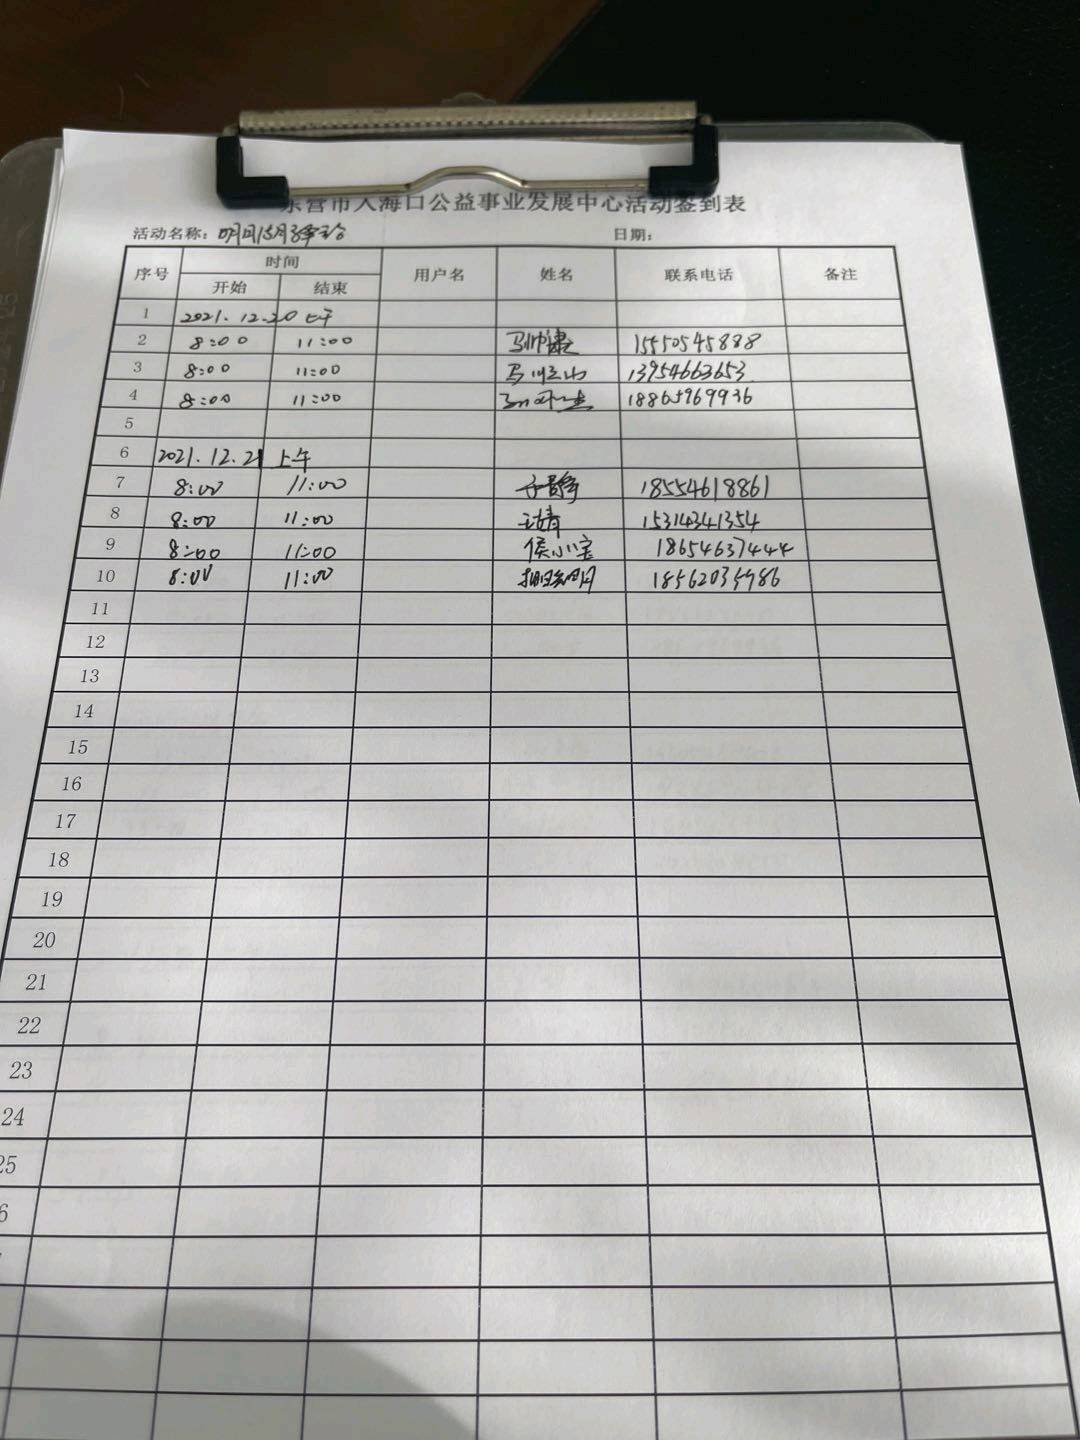 东营市入海口公益事业发展中心活动签到表
活动名称: 日期:
序号 时间 用户名 姓名 联系电话 备注
开始 结束
1 2021.12.20 上午
2 8:00 11:00 15550545888
3 8:00 11:00 13954663653
4 8:00 11:00 18865969936
5
6 2021.12.21 上午
7 8:00 11:00 于静 18554618861
8 8:00 11:00 王婧 15314341354
9 8:00 11:00 侯小宝 18654637444
10 8:00 11:00 18562035986
11
12
13
14
15
16
17
18
19
20
21
22
23
24
25
6